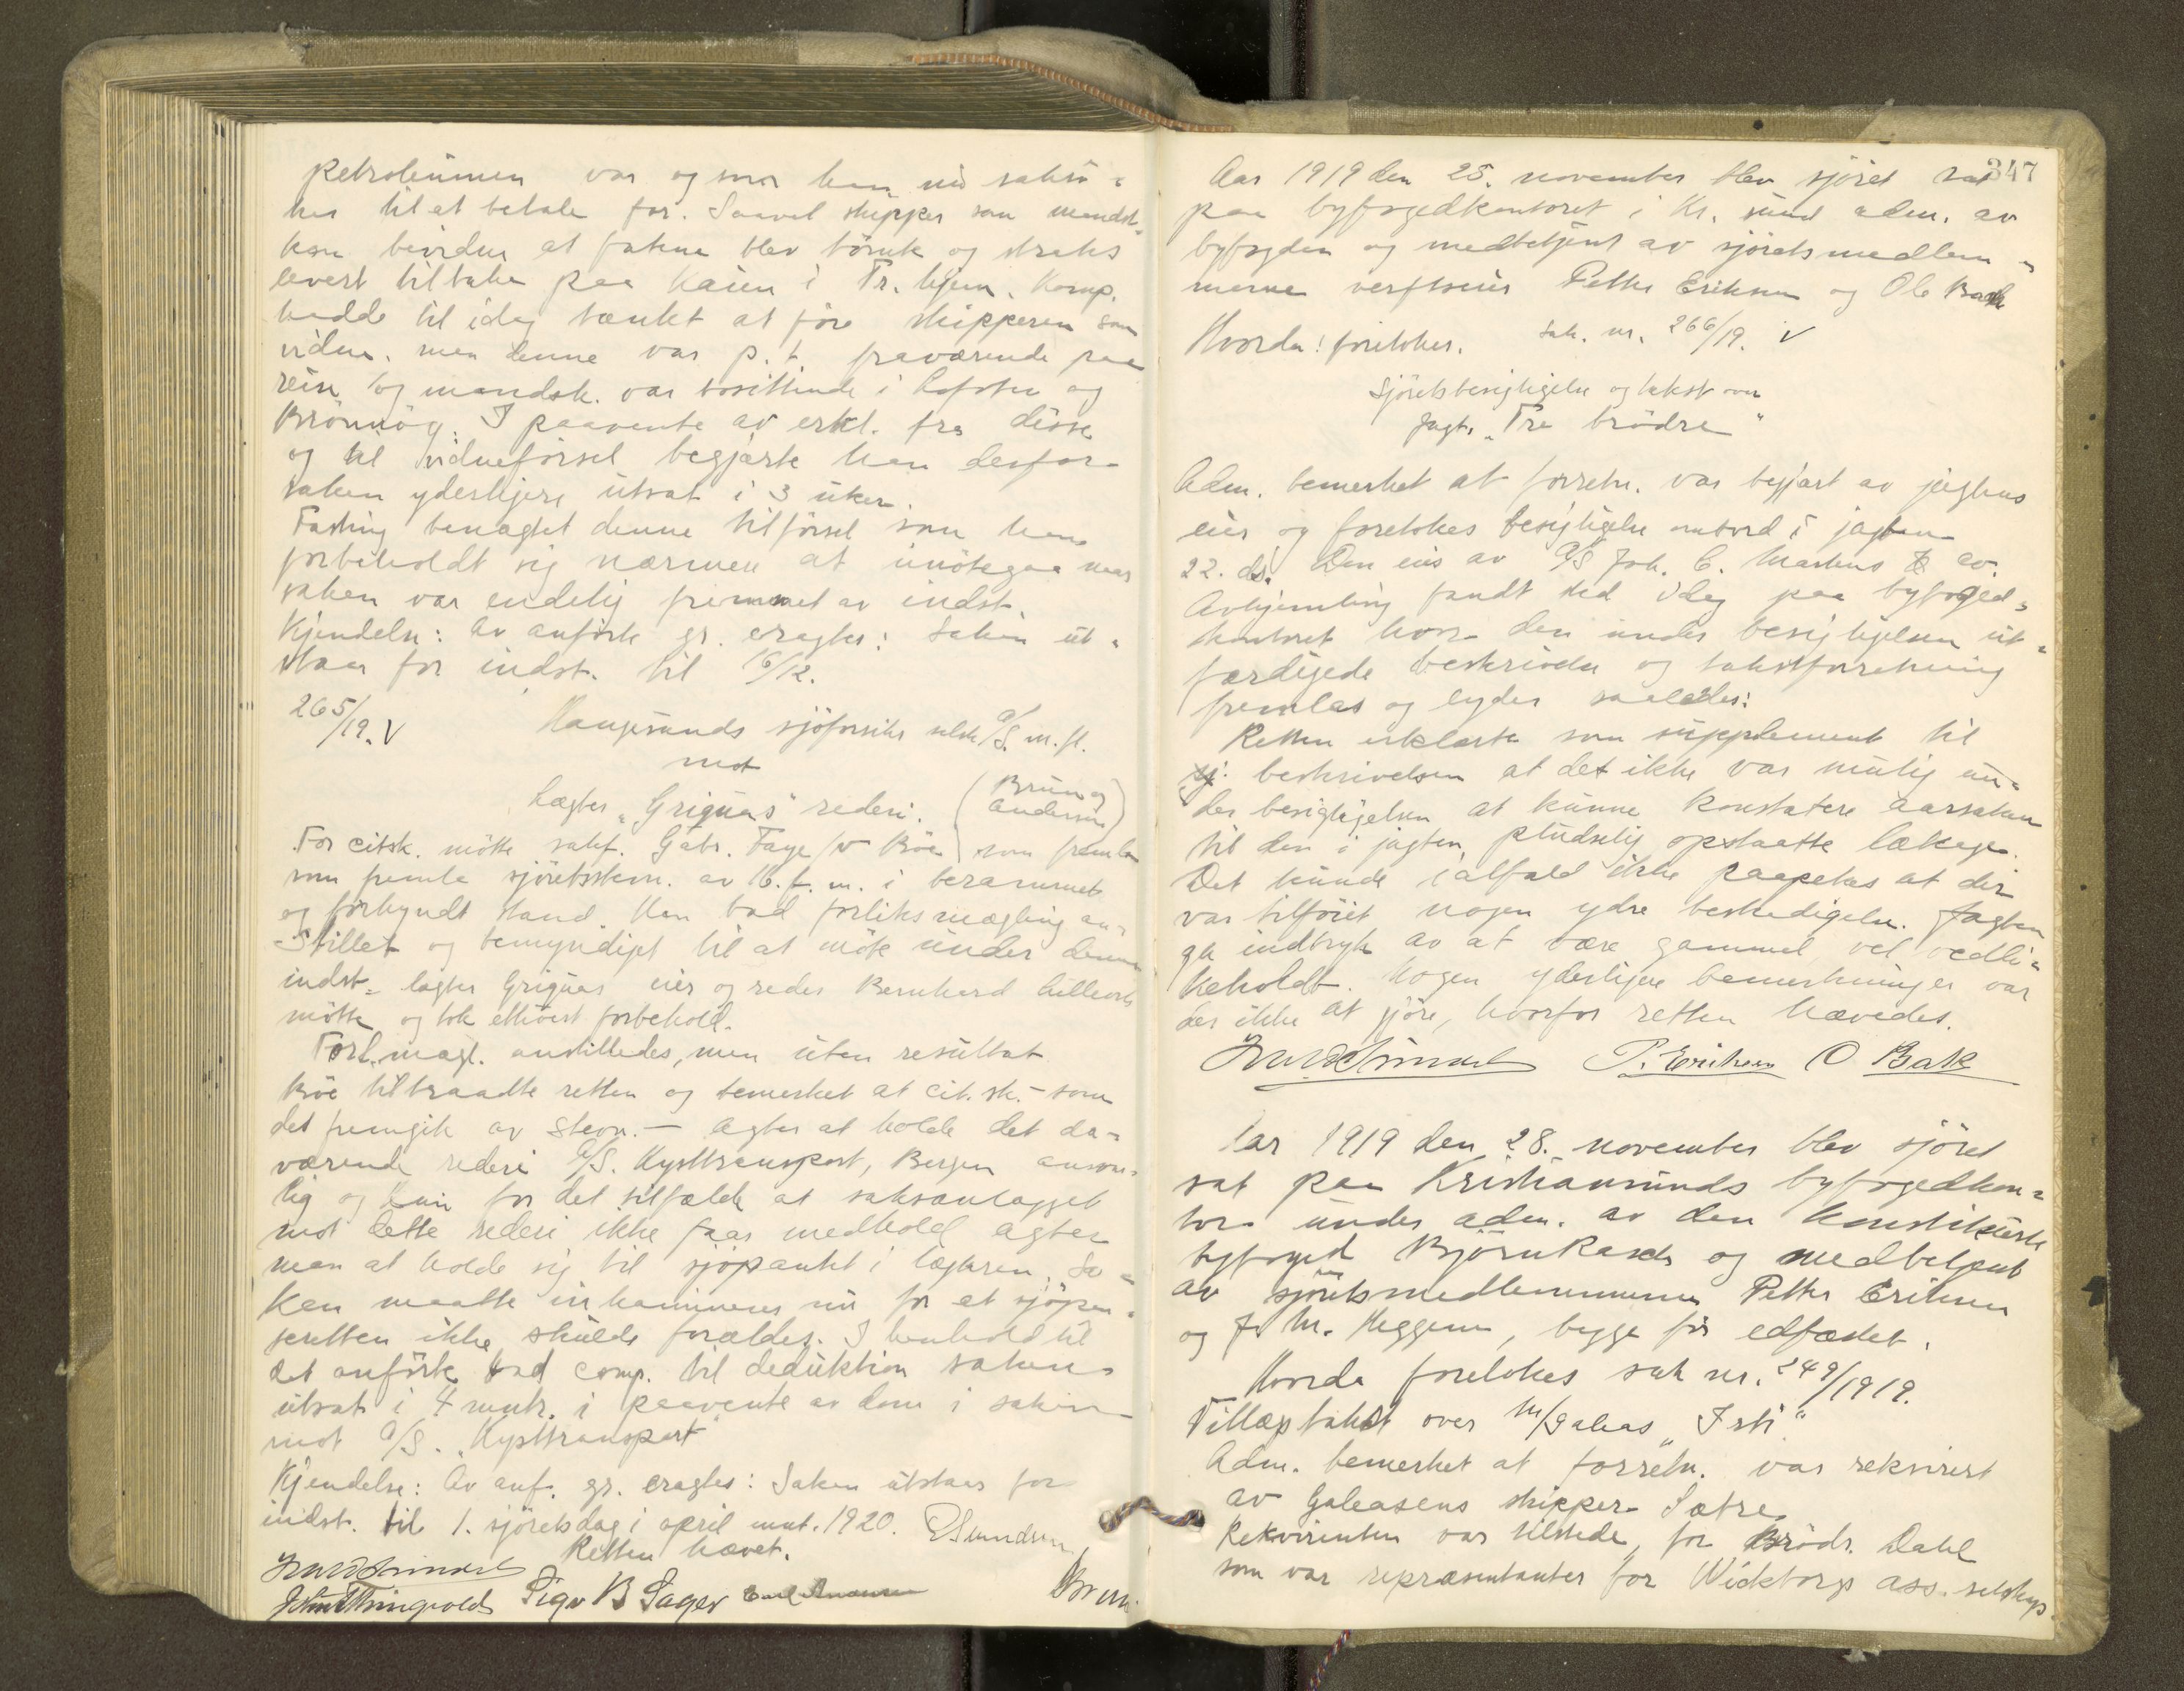 petroleumen var og som han nu saksö-
kes til at betale for. Saavel skipper som mandsk-
kan bevidne at fatene blev tömt og straks
levert tilbake paa kaien i Tr.hjem. Komp.
hadde til idag tænkt at före skipperen som
vidne, men denne var p.t. fraværende paa
reise og mandsk. var bosittende i Lofoten og
Brönnöy. I paavente av erkl. fra disse
og til vidneförsel begjærte han derfor
saken yderligere utsat i 3 uker.
Fasting benægtet denne tilförsel som han
forbeholdt sig nærmere at imötegaa naar
saken var endelig fremmet av indst.
Kjendelse: Av anförte gr. eragtes: Saken ut-
staar for indst. til 16/12.
265/19. V Haugesunds sjöforsikr. selsk. A/S. m. fl.
mot
Lægter "Griguas" rederi. (Brun og Andersen)
For citsk. mötte sakf. Gabr. Faye /v Böe som fremla
som fremla sjöretsstevn. av 16. f. m. i berammet
og forkyndt stand. Han bad forliksmægling an-
stillet og bemyndiget til at möte under denne
indst. lægter Griguas eier og reder Bernhard
mötte og tok ethvert forbehold.
Forl.mægl. anstilledes, men uten resultat.
Böe tiltraadte retten og bemerket at cit.sk. - som
det fremgik av stevn. - agter at holde det da-
værende rederi A/S. Kysttransport, Bergen ansvar-
lig og kun for det tilfælde at saksanlægget
mot dette rederi ikke faar medhold agter
man at holde sig til sjöpantet i lægteren. Sa-
ken maatte inkamineres nu for at sjöpan-
teretten ikke skulde forældes. I henhold til
det anförte bad comp. til deduktion saken
utsat i 4 mntr. i paavente av dom i saken
mot A/S. "Kysttransport"
Kjendelse: Av anf. gr. eragtes: Saken utstaar for
indst. til 1. sjöretsdag i april mnt. 1920.
Retten hævet.
Sigv B Sager
Brun
347
Aar 1919 den 25. november blev sjöret sat
paa byfogedkontoret i Kr.sund adm. av
byfogden og medbetjent av sjöretsmedlem-
merne verftseier Petter Eriksen og Ole Bak
Hvorda: foretokes. Sak. nr. 266/19. V
Sjöretsbesigtigelse og takst over
Jagt. "Tre brödre"
Adm. bemerket at forretn. var begjært av jagtens
eier og foretokes besigtigelse ombord i jagten
22. ds. Den eies av A/S Joh. C. Martens & Co.
Avhjemling fandt sted idag paa byfoged-
kontoret hvor den under besigtigelsen ut-
færdigede beskrivelse og takstforretning
fremlas og lyder saaledes:
Retten erklærte som supplement til
beskrivelsen at det ikke var mulig un-
der besigtigelsen at kunne konstatere aarsaken
til den i jagten pludselig opstaatte lækage.
Det kunde ialfald ikke paapekes at der
var tilföiet nogen ydre beskadigelse. Jagten
ga indtryk av at være gammel, vel vedli-
keholdt. Nogen yderligere bemerkninger var
der ikke at gjöre, hvorfor retten hævedes.
P. Eriksen O. Bak
Aar 1919 den 28. november blev sjöret
sat paa Kristiansunds byfogedkon-
tor under adm. av den konstituerte
byfoged Björn Rasch og medbetjent
av sjöretsmedlemmerne Petter Eriksen
og J. M. Heggem, begge för edfæstet.
Hvorda foretokes sak nr. 249/1919.
Tillægstakst over M/galeas "Isti"
Adm. bemerket at forretn. var rekvirert
av Galeasens skipper Sætre.
Rekvirenten var tilstede, for Brödr. Dahl
som var repræsentanter for Wicktorgs ass. selskap.